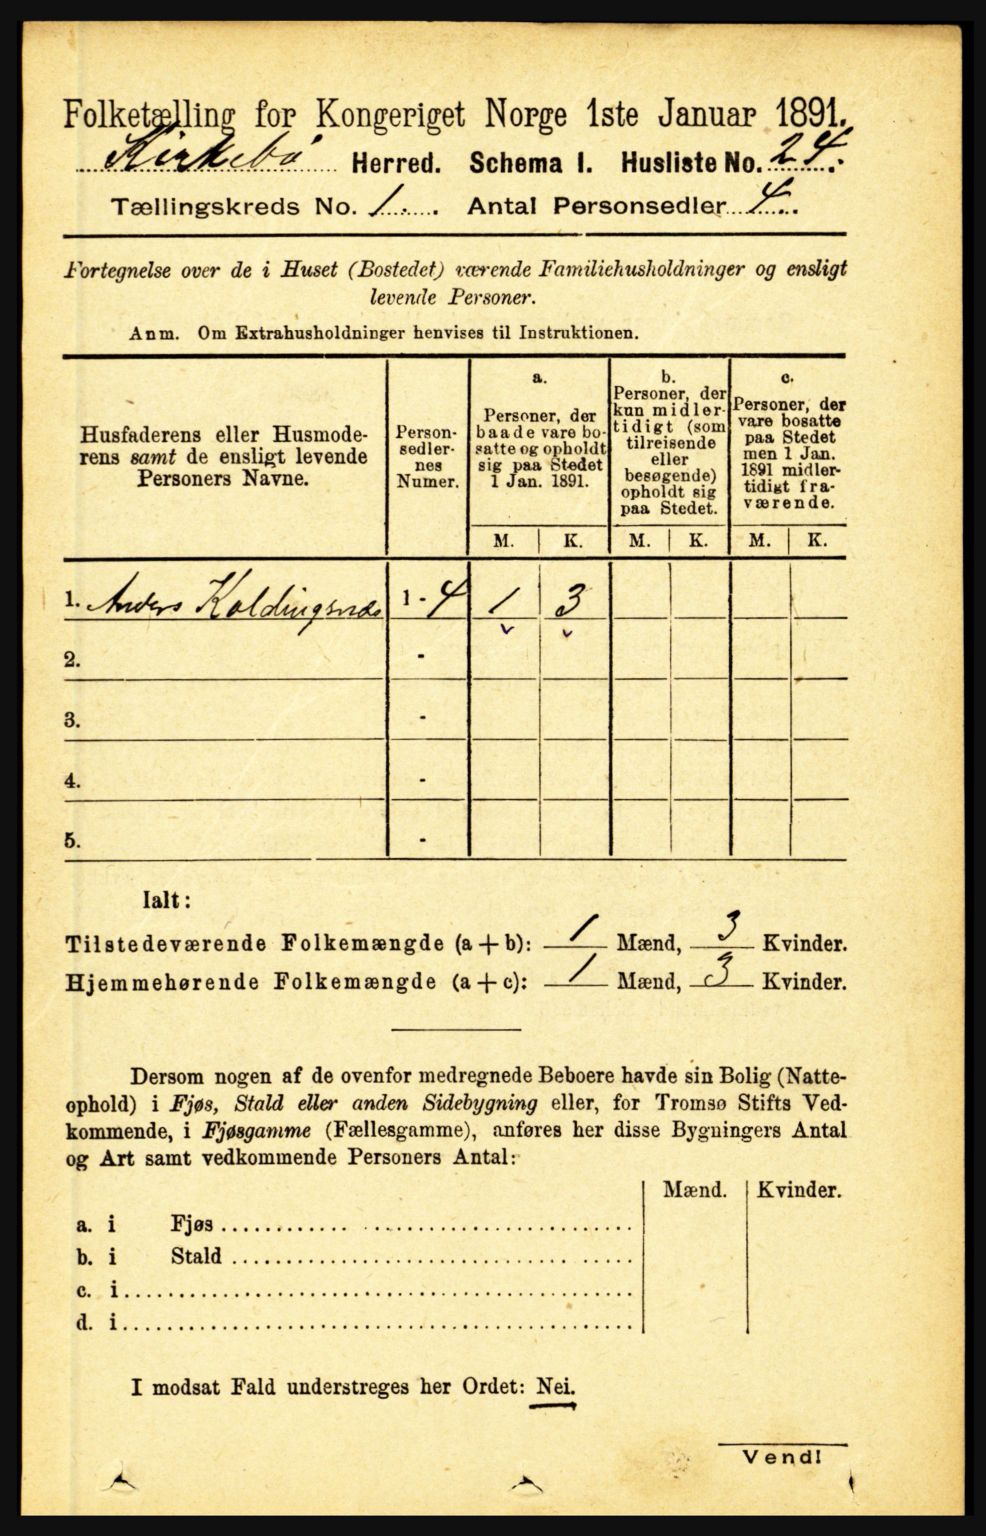 Folketælling for Kongeriget Norge 1ste Januar 1891.
Kirkebø Herred. Schema I. Husliste No. 24.
Tællingskreds No. 1. Antal Personsedler 4.
Fortegnelse over de i Huset (Bostedet) værende Familiehusholdninger og ensligt
levende Personer.
Anm. Om Extrahusholdninger henvises til Instruktionen.
Husfaderens eller Husmode-
rens samt de ensligt levende
Personers Navne.
Person-
sedler-
nes
Numer.
a.
Personer, der
baade vare bo-
satte og opholdt
sig paa Stedet
1 Jan. 1891.
b.
Personer, der
kun midler-
tidigt (som
tilreisende
eller
besøgende)
opholdt sig
paa Stedet.
c.
Personer, der
vare bosatte
paa Stedet
men 1 Jan.
1891 midler-
tidigt fra-
værende.
M. K. M. K. M. K.
1. Anders Koldingsnæs 1 - 4 1 3
2. -
3. -
4. -
5. -
Ialt:
Tilstedeværende Folkemængde (a+b): 1 Mænd, 3 Kvinder.
Hjemmehørende Folkemængde (a+c): 1 Mænd, 3 Kvinder.
Dersom nogen af de ovenfor medregnede Beboere havde sin Bolig (Natte-
ophold) i Fjøs, Stald eller anden Sidebygning eller, for Tromsø Stifts Ved-
kommende, i Fjøsgamme (Fællesgamme), anføres her disse Bygningers Antal
og Art samt vedkommende Personers Antal:
Mænd. Kvinder.
a. i Fjøs
b. i Stald
c. i
d. i
I modsat Fald understreges her Ordet: Nei.
Vend!